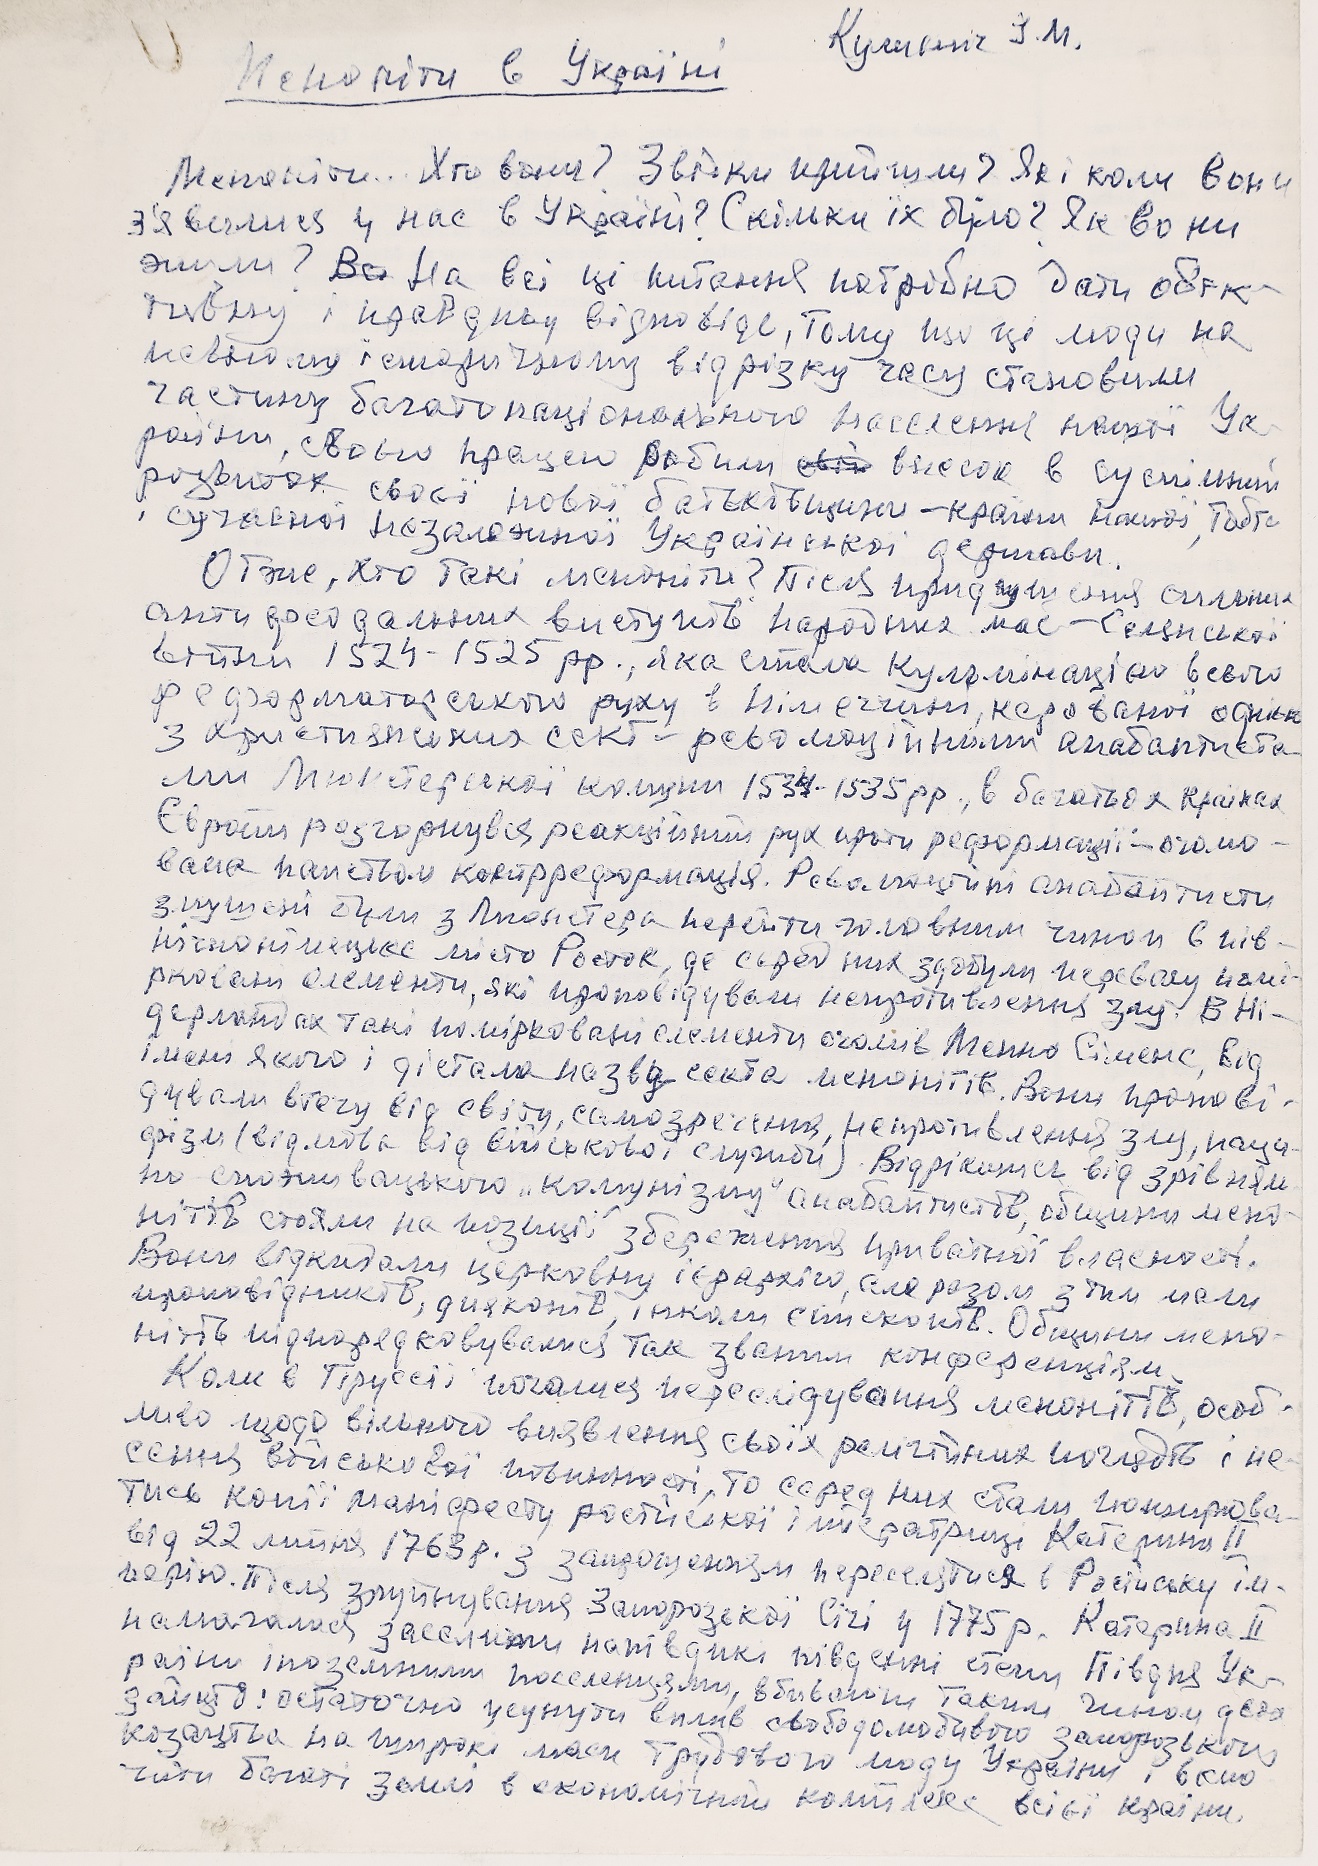 І.М.
Меноніти в Україні
Меноніти... Хто вони? Звідки прийшли? Як і коли вони
з'явились у нас в Україні? Скільки їх було? Як вони
жили? Во На всі ці питання потрібно дати об'єк-
тивну і правдиву відповідь, тому що ці люди на
певному історичному відрізку часу становили
частину багатонаціонального населення нашої Ук-
раїни, своєю працею робили свій внесок в успішний
розвиток своєї нової батьківщини – країни нашої, тобто
сучасної незалежної Української держави.
Отже, хто такі меноніти? Після придушення сильних
антифеодальних виступів народних мас – Селянської
війни 1524-1525 рр., яка стала кульмінацією всього
реформаторського руху в Німеччині, керованої одною
з християнських сект – революційними анабаптиста-
ми Мюнстерської комуни 1534-1535 рр., в багатьох країнах
Європи розгорнувся реакційний рух проти реформації – очолю-
вана папством контрреформація. Революційні анабаптисти
змушені були з Мюнстера перейти головним чином в пів-
нічнонімецьке місто Росток, де серед них здобули перевагу помі-
рковані елементи, які проповідували непротивлення злу. В Ні-
дерландах такі помірковані елементи очолив Менно Сіменс, від
імені якого і дістала назву секта менонітів. Вони пропові-
дували втечу від світу, самозречення, непротивлення злу, паци-
фізм (відмова від військової служби). Відрікшись від зрівняль-
но споживацького „комунізму" анабаптистів, общини мено-
нітів стояли на позиції збереження приватної власності.
Вони відкидали церковну ієрархію, але разом з тим мали
проповідників, дияконів, інколи єпископів. Общини мено-
нітів підпорядковувалися так званим конференціям.
Коли в Пруссії почалися переслідування менонітів, особ-
ливо щодо вільного виявлення своїх релігійних поглядів і не-
сення військової повинності, то серед них стали поширюва-
тись копії маніфесту російської імператриці Катерини II
від 22 липня 1763 р. з запрошенням переселятися в Російську ім-
перію. Після зруйнування Запорозької Січі у 1775 р. Катерина II
намагалася заселити напівдикі південні степи Півдня Ук-
раїни іноземними поселенцями, вбиваючи таким чином двох
зайців: остаточно усунути вплив свободолюбивого запорозького
козацтва на широкі маси трудового люду України і вклю-
чити багаті землі в економічний комплекс всієї країни.